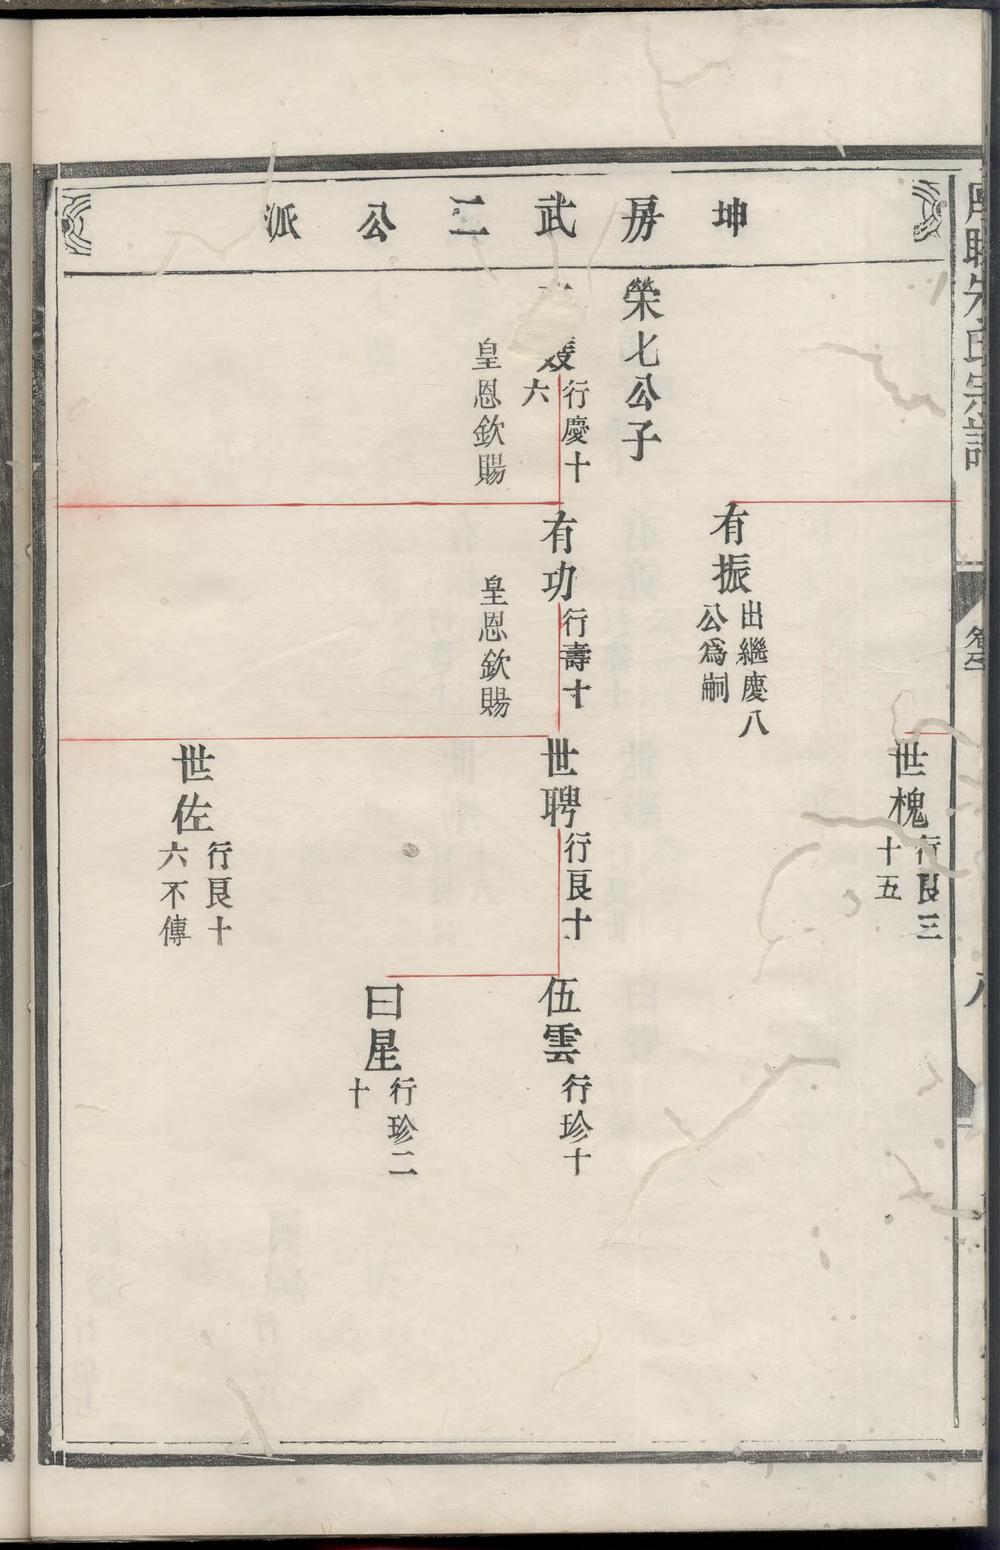 坤房武二公派
榮七公子
行慶十六
皇恩欽賜
有振
出繼慶八公爲嗣
有功
行壽十
皇恩欽賜
世槐
行良三十五
世聘
行良十
世佐
行良十六不傳
伍雲
行珍十
曰星
行珍二十
朱氏宗譜
八